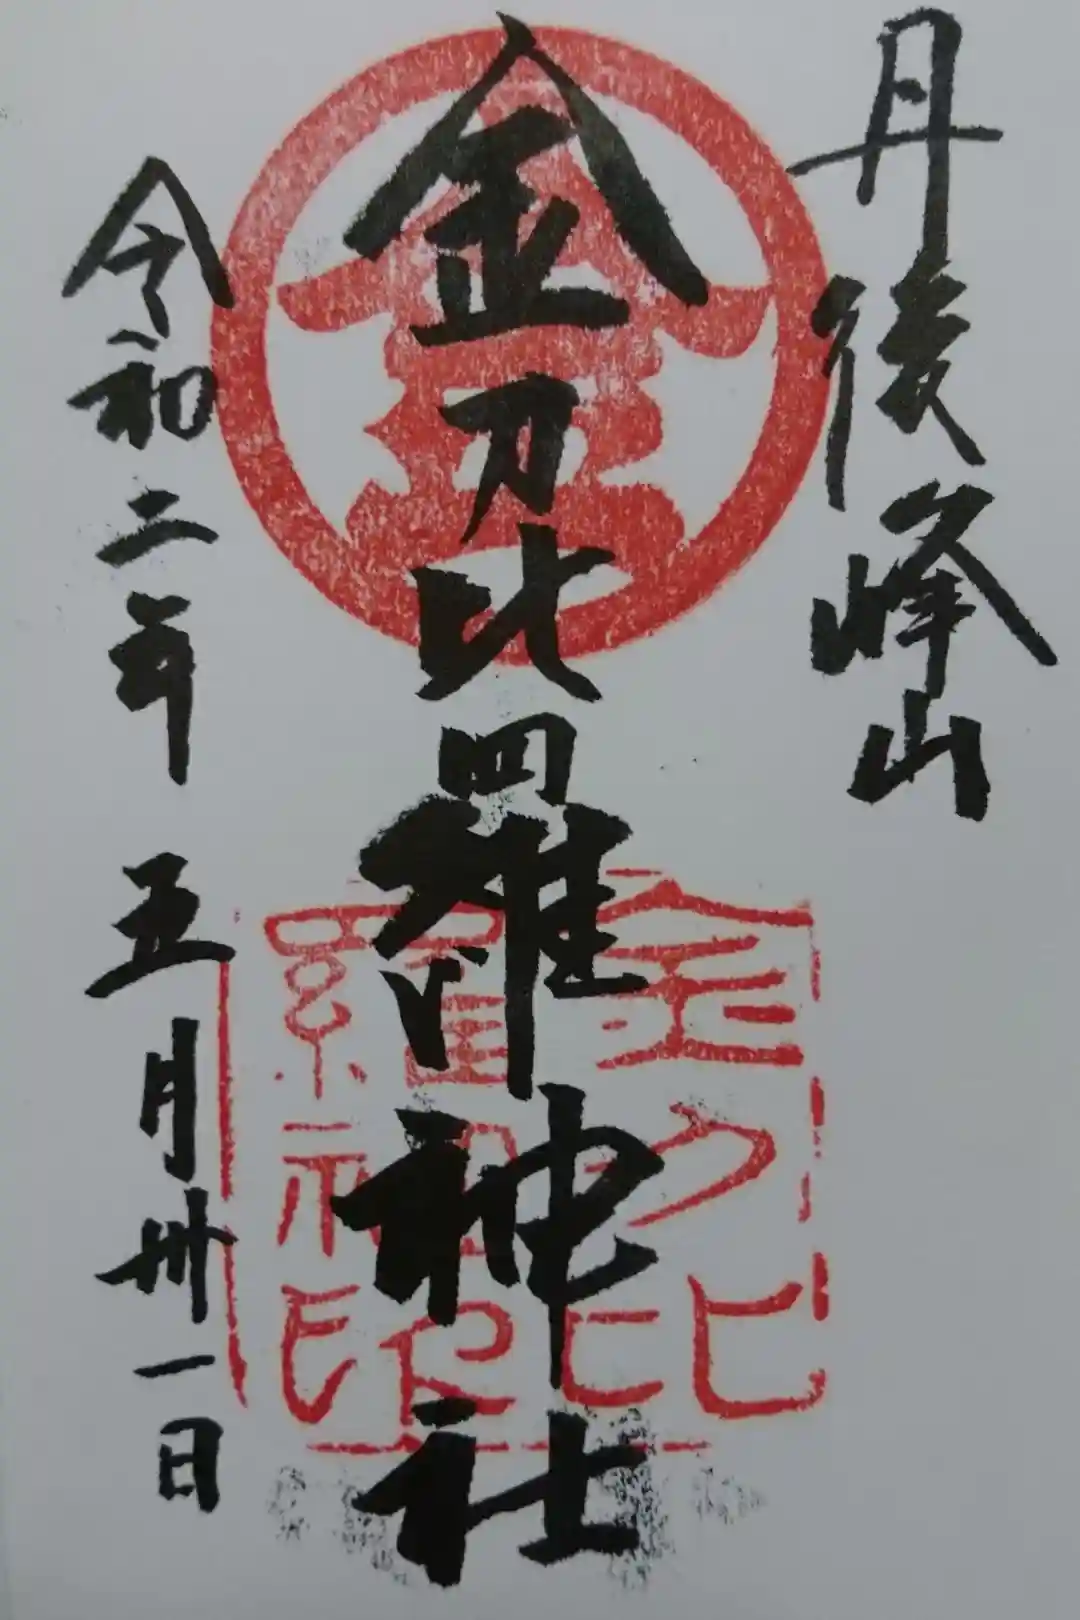 丹後峰山
金刀比羅神社
令和二年五月卅一日
金
金刀比
羅神社印